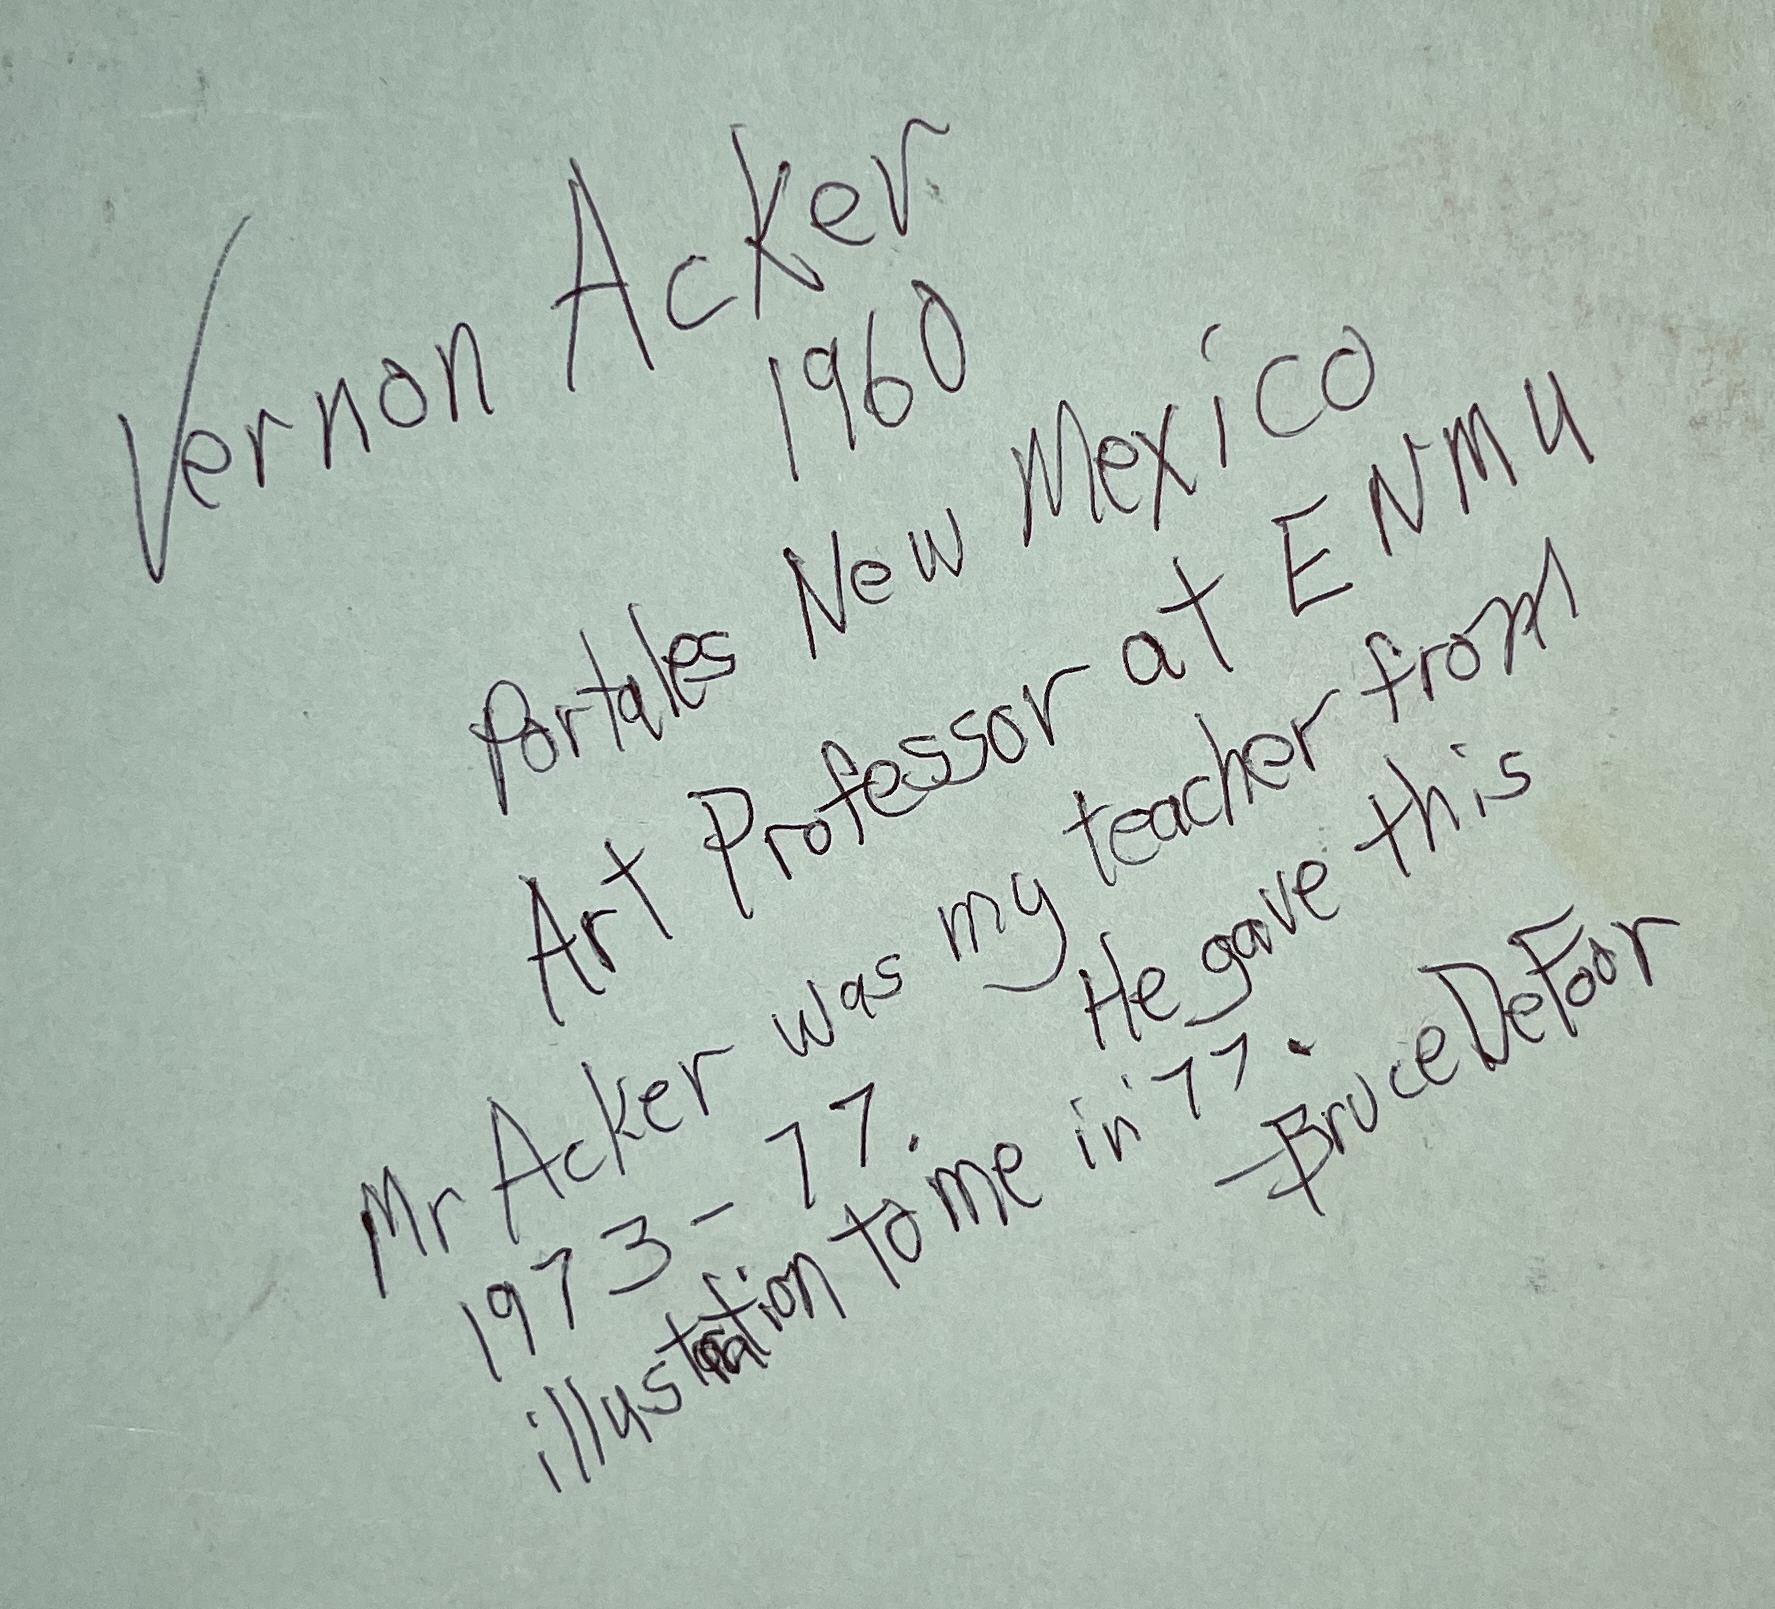 Vernon Acker
1960
Portales New Mexico
Art Professor at ENMU
Mr Acker was my teacher from
1973-77. He gave this
illustration to me in '77.
-Bruce DeFoor